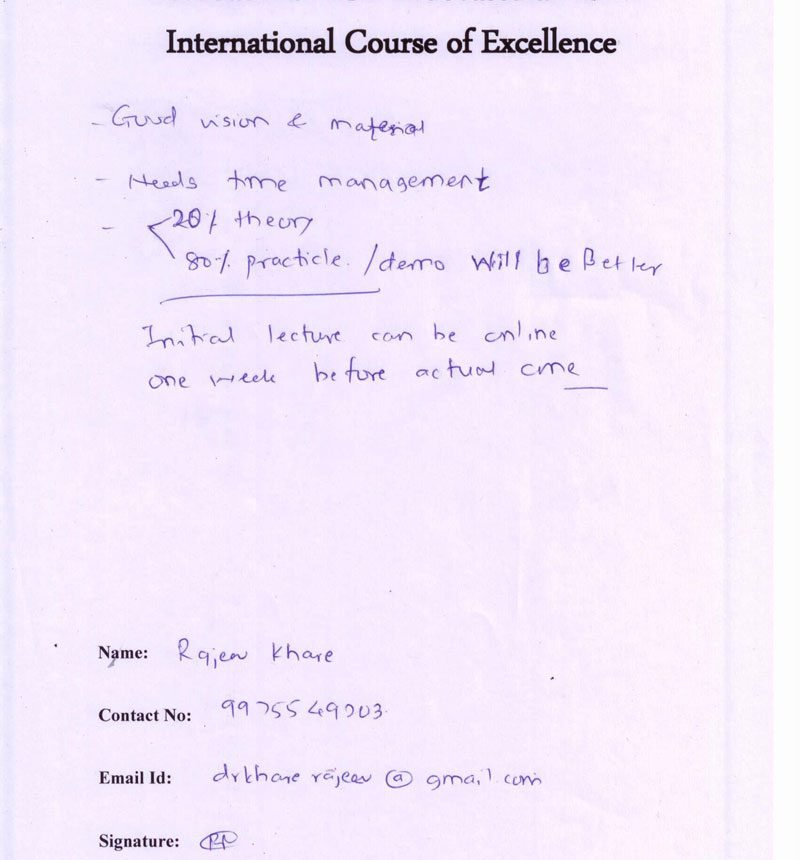 International Course of Excellence
- Good vision & material
- Needs time management
- 20% theory
80% practicle. / demo will be Better
Initial lecture can be online
one week before actual cme
Name: Rajeev Khare
Contact No:
Email Id: drkhare rajeev @ gmail.com
Signature: